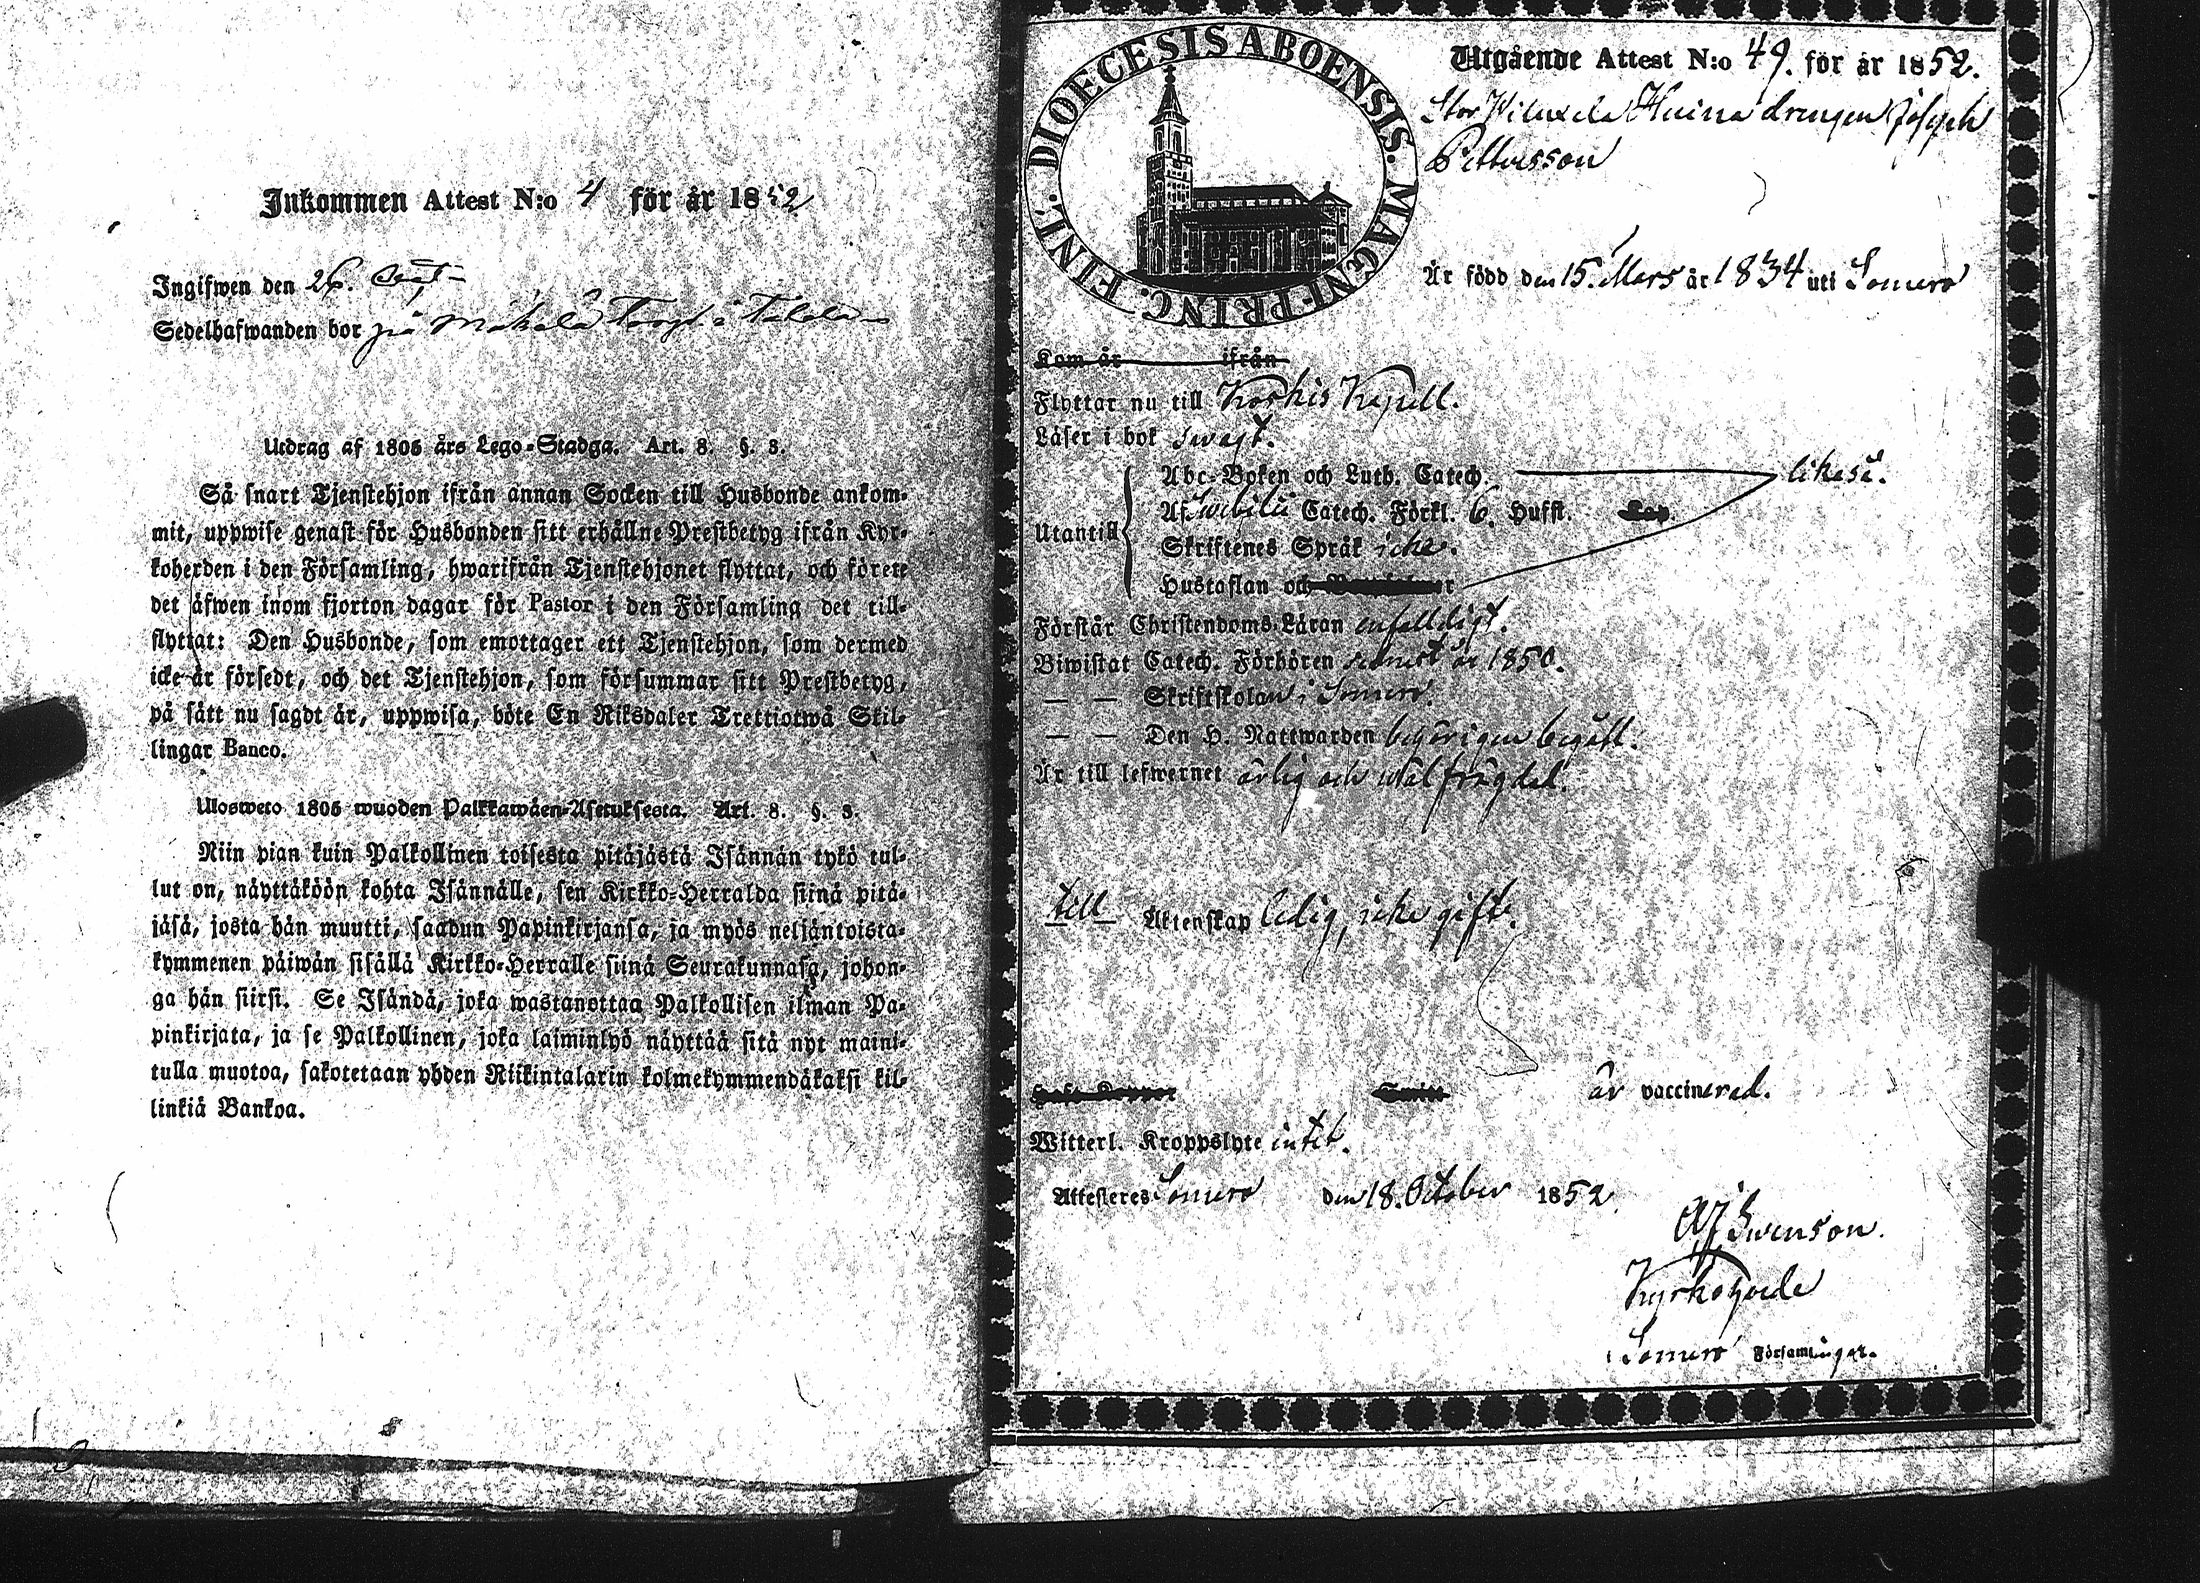 Inkommen Attest N:o 4 för år 1852
Ingifwen den 26.
Sedelhafwanden bor på
Utdrag af 1805 års Lego-Stadga. Art. 8. §. 3.
Så snart Tjenstehjon ifrån annan Socken till Husbonde ankom-
mit, uppwise genast för Husbonden sitt erhållne Prestbetyg ifrån Kyr-
koherden i den Församling, hwarifrån Tjenstehjonet flyttat, och förete
det äfwen inom fjorton dagar för Pastor i den Församling det till-
flyttat: Den Husbonde, som emottager ett Tjenstehjon, som dermed
icke är försedt, och det Tjenstehjon, som försummar sitt Prestbetyg,
på sätt nu sagdt är, uppwisa, böte En Riksdaler Trettiotwå Skil-
lingar Banco.
Ulosweto 1805 wuoden Palkkawäen-Asetuksesta. Art. 8. §. 3.
Niin pian kuin Palkollinen toisesta pitäjästä Isännän tykö tul-
lut on, näyttäköön kohta Isännälle, sen Kirkko-Herralda siinä pitä-
jäsä, josta hän muutti, saadun Papinkirjansa, ja myös neljäntoista-
kymmenen päiwän sisällä Kirkko-Herralle siinä Seurakunnasa, johon-
ga hän siirsi. Se Isändä, joka wastanottaa Palkollisen ilman Pa-
pinkirjata, ja se Palkollinen, joka laiminlyö näyttää sitä nyt maini-
tulla muotoa, sakotetaan yhden Riikintalarin kolmekymmendäkaksi kil-
linkiä Bankoa.
DIOECESIS ABOENSIS. MAGNI-PRINC. FINL.
Utgående Attest N:o 49. för år 1852.
drengen Joseph
Pettersson
Är född den 15. Mars år 1834 uti Somero
Kom år ifrån
Flyttar nu till Koskis Kapell.
Läser i bok swagt.
Abc-Boken och Luth. Catech. likaså.
Utantill
Af Swebilii Catech. Förkl. 6. Hufst.
Skriftenes Språk icke.
Hustaflan och
Förstår Christendoms-Läran enfaldigt.
Biwistat Catech. Förhören senast år 1850.
— — Skriftskolan i Somero.
— — Den H. Nattwarden behörigen begått.
Är till lefwernet ärlig och wälfrägdad.
till Äktenskap ledig, icke gift.
är vaccinerad.
Witterl. Kroppslyte intet.
Attesteres Somero den 18. October 1852.
Swenson.
Kyrkoherde
i Somero Församlingar.